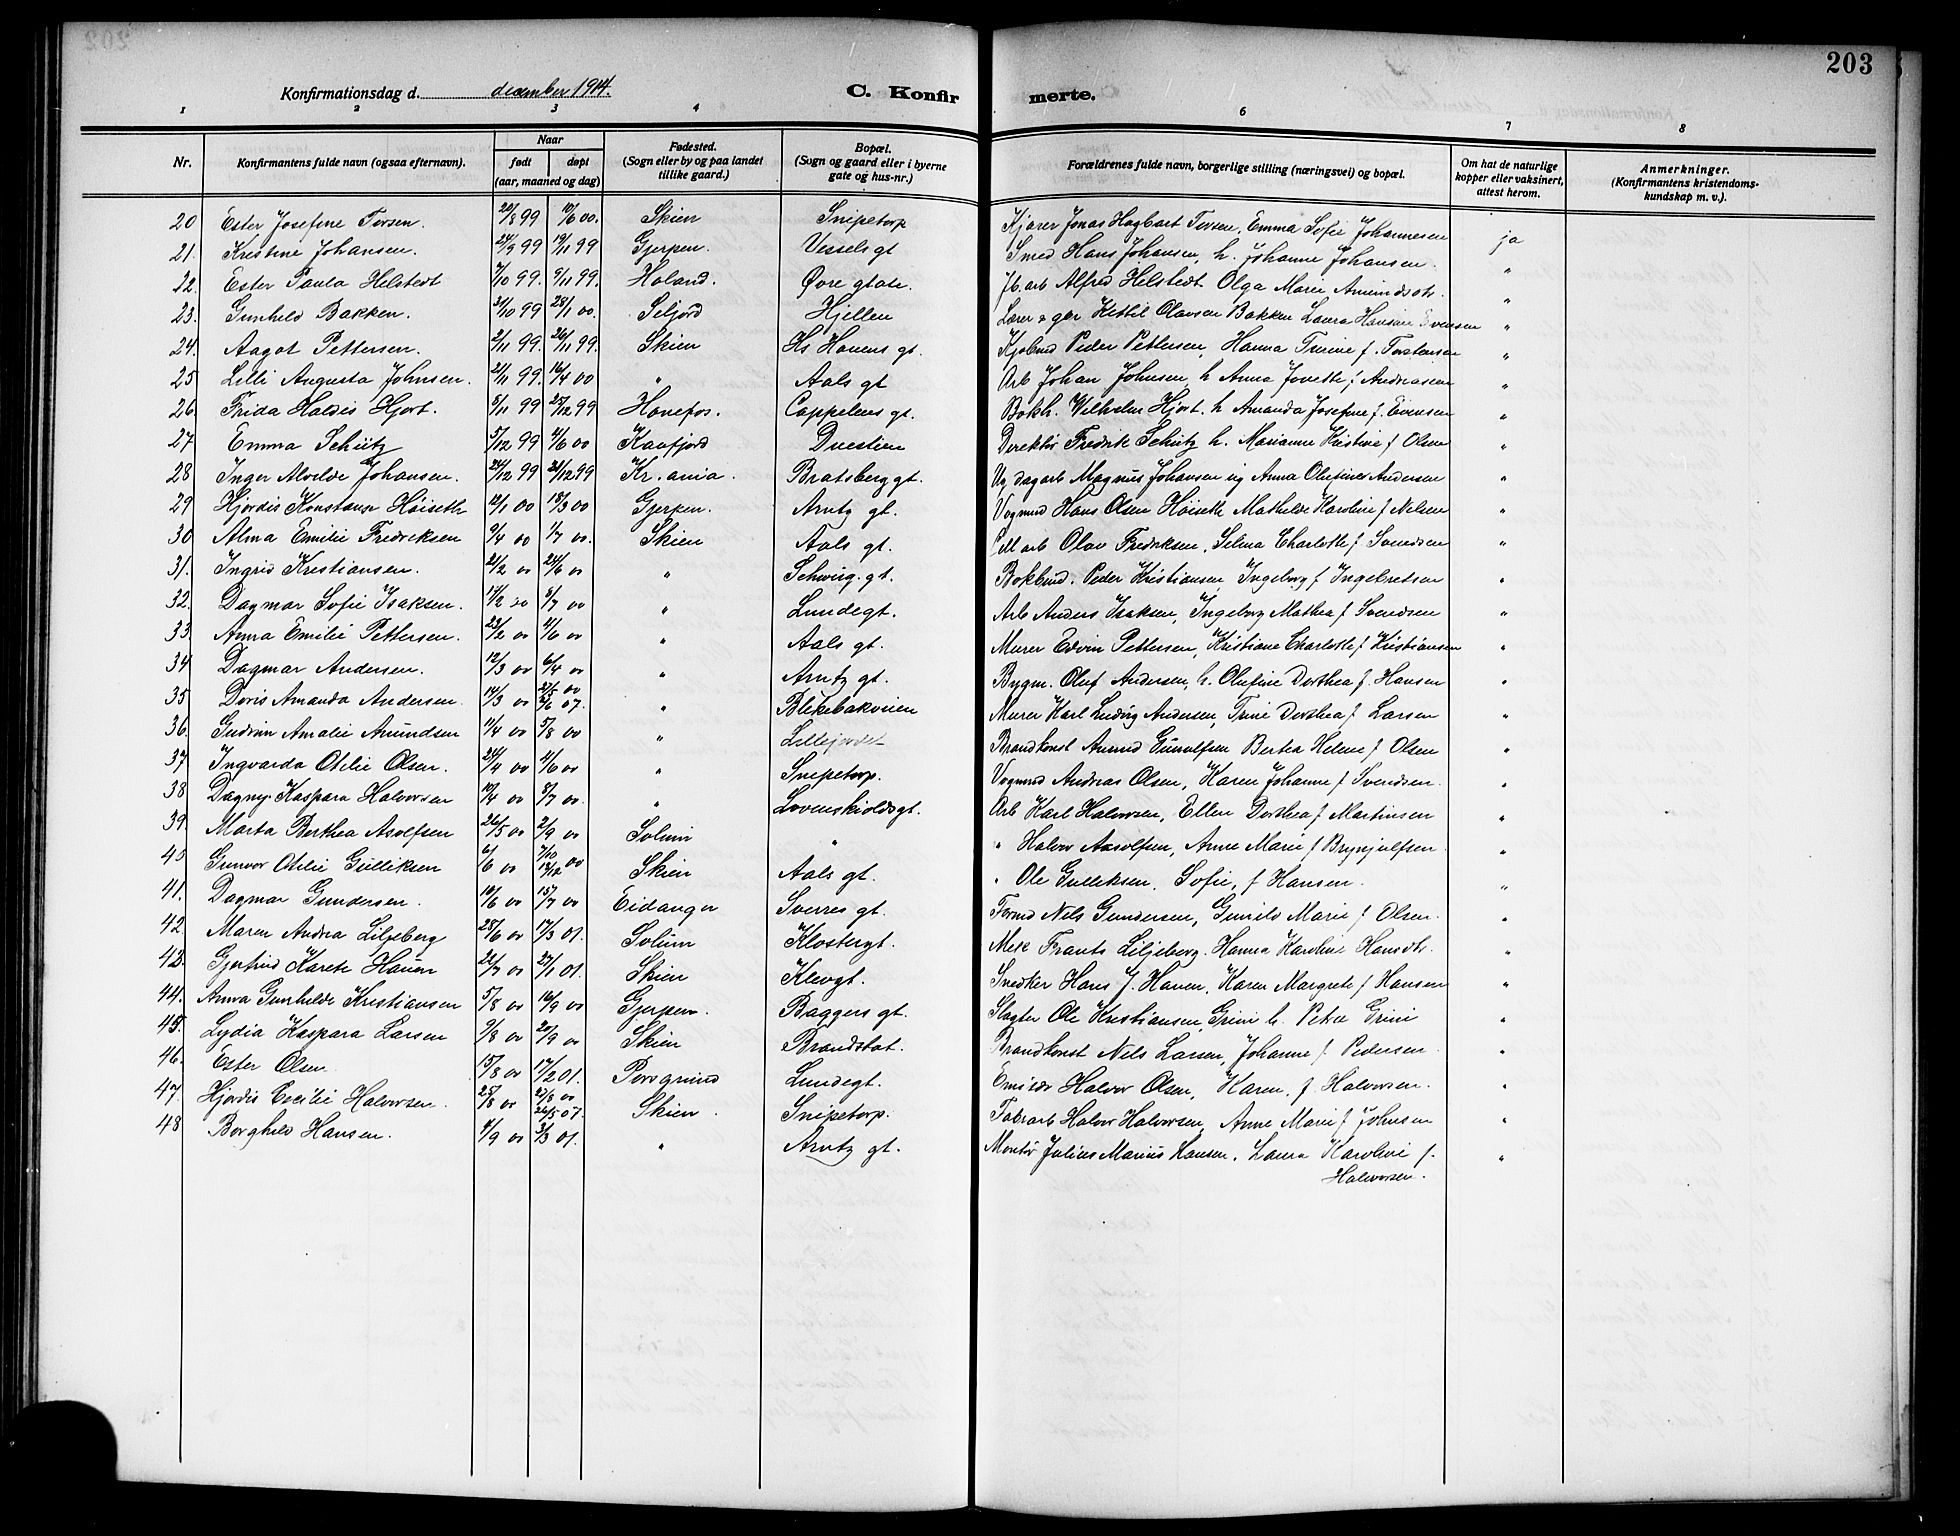 203
Konfirmationsdag d. december 1914.
C. Konfir merte.
1 2 3 4 5 6 7 8
Nr. Konfirmantens fulde navn (ogsaa efternavn). Naar født døpt (aar, maaned og dag) Fødested. (Sogn eller by og paa landet tillike gaard.) Bopæl. (Sogn og gaard eller i byerne gate og hus-nr.) Forældrenes fulde navn, borgerlige stilling (næringsvei) og bopæl. Om hat de naturlige kopper eller vaksinert, attest herom. Anmerkninger. (Konfirmantens kristendoms-kundskap m. v.).
20 Ester Josefine Torsen. 20/8 99 10/6 00. Skien Snipetorp Kjører Jonas Hagbart Torsen, Emma Sofie Johannesen ja
21. Kristine Johansen. 24/9 99 19/11 99 Gjerpen. Vessels gt Smed Hans Johansen, h. Johanne Johansen. "
22. Ester Paula Helstedt 7/10 99. 5/11 99. Holand. Øvre gtate. Jb. arb Alfred Helstedt Olga Marie Amundsdtr. "
23. Gunhild Bakken. 31/10 99 28/1 00. Seljord Hjellen Lærer & gør Kittil Olavsen Bakken Laura Hansine Evensen "
24. Aagot Pettersen. 2/11 99. 26/11 99. Skien Hs Houens gt. Kjøbmd Peder Pettersen, Hanna Turine f. Torstensen "
25 Lilli Augusta Johnsen. 21/11 99. 16/4 00 " Aals gt Arb Johan Johnsen, h Anna Jovette f Andreasen "
26. Frida Haldis Hjort. 8/11 99 25/12 99 Hønefos. Cappelens gt. Bokh. Wilhelm Hjort. h Amanda Josefine f. Evensen "
27 Emma Schütz 5/12 99 4/6 00 Kaafjord Duestien Direktør Fredrik Schütz h. Marianne Kristine f Olsen "
28 Inger Alvilde Johansen. 24/12 99 21/12 99 Kr. ania. Bratsberg gt. Ug dagarb Magnus Johansen ug Anna Olufine Andersen "
29 Hjørdis Konstanse Høiseth 12/1 00 18/3 00 Gjerpen. Arntz gt. Vogmnd Hans Olsen Høiseth Mathilde Karoline f Nelsen "
30 Alma Emilie Fredriksen 9/4 00 1/7 00. Skien Aals gt. arb Olav Fredriksen, Selma Charlotte f Svendsen "
31. Ingrid Kristiansen. 21/2 00 24/6 00 " Schwieg. gt. Bokbind. Peder Kristiansen Ingeborg f Ingebretsen "
32. Dagmar Sofie Isaksen. 17/2 00 8/7 00 " Lundegt. Arb Anders Isaksen, Ingeborg Mathea f Svendsen "
33. Anna Emilie Pettersen. 23/2 00 4/6 00 " Aals gt. Murer Edvin Pettersen, Kristiane Charlotte f Kristiansen "
34 Dagmar Andersen. 12/3 00 6/4 00 " Arntz gt. Bygm. Oluf Andersen, h. Olufine Dorthea f. Hansen "
35 Doris Amanda Andersen 14/3 00 27/5 00 23/6 07. " Blekebakveien Murer Karl Ludvig Andersen, Trine Dorthea f Larsen "
36. Gudrun Amalie Amundsen 11/4 00 5/8 00 " Lillejordet Brandkonst Amund Gunulfsen Bertea Helene f Olsen "
37 Ingvarda Otilie Olsen. 24/4 00 4/6 00 " Snipetorp. Vogmnd Andreas Olsen, Karen Johanne f Svendsen. "
38 Dagny Kaspara Halvorsen 10/4 00 8/7 00. " Løvenskioldsgt. Arb Karl Halvorsen, Ellen Dorthea f Martinsen "
39. Marta Berthea Asolfsen 26/5 00 2/9 00 Solum " " Halvor Aasolfsen, Anne Marie f Brynjulfsen. "
40 Gunvor Otilie Gulliksen 6/6 00 7/10 00 13/12 Skien Aals gt. " Ole Gulliksen, Sofie, f Hansen. "
41. Dagmar Gundersen. 10/6 00 15/7 00 Eidanger Sverres gt. Formd Nils Gundersen, Gunild Marie f Olsen. "
42. Maren Andrea Liljeberg 28/6 00 17/3 01. Solum Klostergt. Mek Frants Liljeberg. Hanna Karoline Hansdtr. "
43. Gjertrud Karete Hauen 22/7 00 27/1 01. Skien Klevgt. Snedker Hans J. Haven, Karen Margrete f Hansen "
44. Anna Gunhilde Kristiansen 5/8 00 16/9 00 Gjerpen. Baggers gt. Slagter Ole Kristiansen, Grini h. Petra Grini "
45. Lydia Kaspara Larsen 9/8 00 20/9 00 Skien Brandstat. Brandkonst Nils Larsen, Johanne f. Pedersen "
46. Ester Olsen 15/8 00 17/2 01. Porsgrund Lundegt. Halvor Olsen, Karen. f Halvorsen. "
47. Hjørdis Cecilie Halvorsen. 25/8 00 23/8 00 26/5 07. Skien. Snipetorp. Fabrarb Halvor Halvorsen, Anne Marie f Johnsen "
48 Borghild Hansen. 4/9 00 3/3 01. " Arntz gt. Montør Julius Marius Hansen, Laura Karoline f. "
Halvorsen.